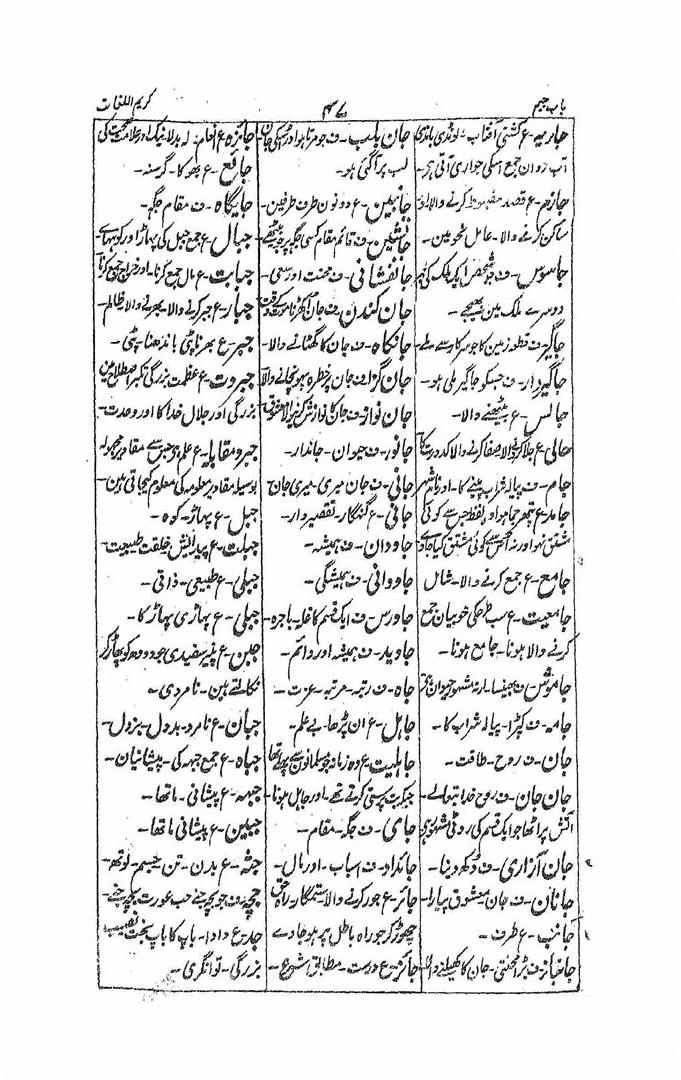 باب جیم
۴۷
کریم اللغات
جاریہ۔ ع کشتی آفتاب۔ لونڈی باندی
آب رواں جمع اسکی جواری آتی ہے۔
جازم۔ ع قصد مضبوط کرنے والا اور
ساکن کرنے والا۔ عامل نحویین۔
جاسوس۔ ف جو شخص ایک ملک کی خبر
دوسرے ملک مین بھیجے۔
جاگیر۔ ف قطعہ زمین کا جو سرکار سے ملے۔
جاگیردار۔ ف جسکو جاگیر ملی ہو۔
جالس۔ ع بیٹھنے والا۔
جالی۔ ع جلا کرنے والا صفا کرنے والا کدورت کا
جام۔ ف پیالہ شراب پینے کا۔ اور نام شہر
جامد۔ ع پتھر جما ہوا۔ وہ لفظ جس سے کوئی
مشتق نہو اور نہ کسی سے وہ مشتق کیا جاوے
جامع۔ ع جمع کرنے والا۔ شامل
جامعیت۔ ع سب طرحکی خوبیان جمع
کرنے والا ہونا۔ جامع ہونا۔
جاموش۔ ف بھینسا۔ ارنہ مشہور حیوان ہے
جامہ۔ ف کپڑا۔ پیالہ شراب کا۔
جان۔ ف روح۔ طاقت۔
جان جان۔ ف روح خدا تعالے۔
آتش پر اٹھا جو ایک قسم کی روٹی مشہور ہے
جان آزاری۔ ف دکھ دینا۔
جانان۔ ف جان معشوق پیارا۔
جانب۔ ع طرف۔
جانباز۔ ف بڑا محنتی۔ جان کا کھیلنے والا
جان بلب۔ ف جو مرتا ہو اور اسکی جان
لب پر آگئی ہو۔
جانبین۔ ع دونون طرف طرفین۔
جانشین۔ ف قائم مقام کسی جگہ پر بیٹھے
جانفشانی۔ ف محنت اور سعی۔
جان کندن۔ ف جان اکھڑنا موت کے وقت
جانکاہ۔ ف جان کا گھٹانے والا۔
جان گزا۔ ف جان پر خطرہ پہونچانے والا
جان نواز۔ ف جان کا نوازش کرنیوالا معشوق
جانور۔ ف حیوان۔ جاندار۔
جانی۔ ف جان میری۔ میری جان
جانی۔ ع گنہگار۔ تقصیر وار۔
جاودان۔ ف ہمیشہ۔
جاودانی۔ ف ہمیشگی۔
جاورس۔ ف ایک قسم کا غلہ۔ باجرہ۔
جاوید۔ ف ہمیشہ اور دائم۔
جاہ۔ ف رتبہ۔ مرتبہ۔ عزت۔
جاہل۔ ع ان پڑھا۔ بے علم۔
جاہلیت۔ ع وہ زمانہ جو مسلمانون سے پہلے تھا
جبکہ بت پرستی کرتے تھے۔ اور جاہل ہونا۔
جای۔ ف جگہ۔ مقام۔
جائداد۔ ف اسباب۔ اور مال۔
جائر۔ ع جور کرنے والا۔ ستمگار۔ راہ حق
چھوڑ کر جو راہ باطل پر ہو جاوے
جائز۔ ع درست۔ مطابق شرع۔
جائزہ۔ ع انعام۔ بدلا نیک اور
جائع۔ ع بھوکا۔ گرسنہ۔
جایگاہ۔ ف مقام جگہ۔
جبال۔ ع جمع جبل کی پہاڑ اور کوہہاے
جبایت۔ ع مال جمع کرنا۔ اور خراج جمع کرنا
جبار۔ ع جبر کرنے والا۔ ظالم۔
جبر۔ ع بھرنا پٹی باندھنا۔ پٹی۔
جبروت۔ ع عظمت بزرگی تکبر اصطلاح مین
بزرگی اور جلال خدا کا اور وحدت۔
جبر و مقابلہ۔ ع علم ہے جس سے مقادیر مجہولہ
بوسیلہ مقادیر معلومہ کی معلوم کیجاتی ہین۔
جبل۔ ع پہاڑ۔ کوہ۔
جبلت۔ ع پیدائش خلقت طبیعت
جبلی۔ ع طبیعی۔ ذاتی۔
جبلی۔ ع پہاڑی پہاڑ کا۔
جبن۔ ع پنیر سفیدی جو دودھ کو پھاڑ کر
نکالتے ہین۔ نامردی۔
جبان۔ ع نامرد۔ بددل۔ بزدل۔
جباہ۔ ع جمع جبہہ کی۔ پیشانیان۔
جبہہ۔ ع پیشانی۔ ماتھا۔
جبین۔ ع پیشانی ماتھا۔
جثہ۔ ع بدن۔ تن جسم۔ لوتھ۔
جچہ۔ ف جو بچہ جنے جب عورت بچہ جنے۔
جد۔ ع دادا۔ باپ کا باپ بخت نصیب
بزرگی۔ توانگری۔